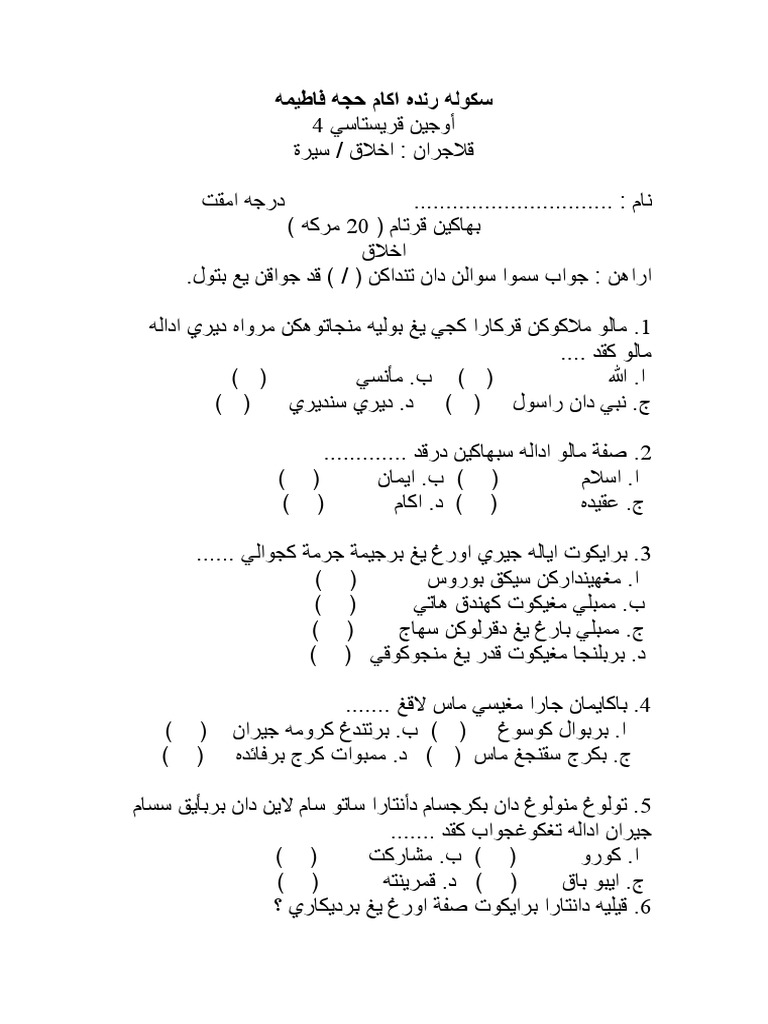 سكوله رنده اكام حجه فاطيمه
أوجين قريستاسي 4
قلاجران : اخلاق / سيرة
نام : .............................. درجه امقت
بهاكين قرتام ( 20 مركه )
اخلاق
اراهن : جواب سموا سوالن دان تنداكن ( / ) قد جواقن يغ بتول.
1. مالو ملاكوكن قركارا كجي يغ بوليه منجاتوهكن مرواه ديري اداله
مالو كقد ....
ا. الله ( ) ب. مأنسي ( )
ج. نبي دان راسول ( ) د. ديري سنديري ( )
2. صفة مالو اداله سبهاكين درقد .............
ا. اسلام ( ) ب. ايمان ( )
ج. عقيده ( ) د. اكام ( )
3. برايكوت اياله جيري اورغ يغ برجيمة جرمة كجوالي ......
ا. مغهينداركن سيكق بوروس ( )
ب. ممبلي مغيكوت كهندق هاتي ( )
ج. ممبلي بارغ يغ دقرلوكن سهاج ( )
د. بربلنجا مغيكوت قدر يغ منجوكوقي ( )
4. باكايمان جارا مغيسي ماس لاقغ .......
ا. بربوال كوسوغ ( ) ب. برتندغ كرومه جيران ( )
ج. بكرج سقنجغ ماس ( ) د. ممبوات كرج برفائده ( )
5. تولوغ منولوغ دان بكرجسام دأنتارا ساتو سام لاين دان بربأيق سسام
جيران اداله تغكوغجواب كقد .......
ا. كورو ( ) ب. مشاركت ( )
ج. ايبو باق ( ) د. قمرينته ( )
6. قيليه دانتارا برايكوت صفة اورغ يغ برديكاري ؟